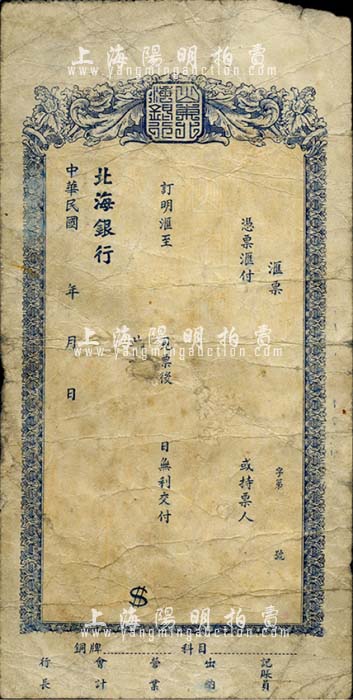 上海陽明拍賣
www.yangmingauction.com
匯票
字第 號
憑票匯付 或持票人
訂明匯至 見票後 日無利交付
北海銀行
中華民國 年 月 日
上海陽明拍賣
www.yangmingauction.com
$
銅牌 科目
行長 會計 營業 出納 記賬員
上海陽明拍賣
www.yangmingauction.com